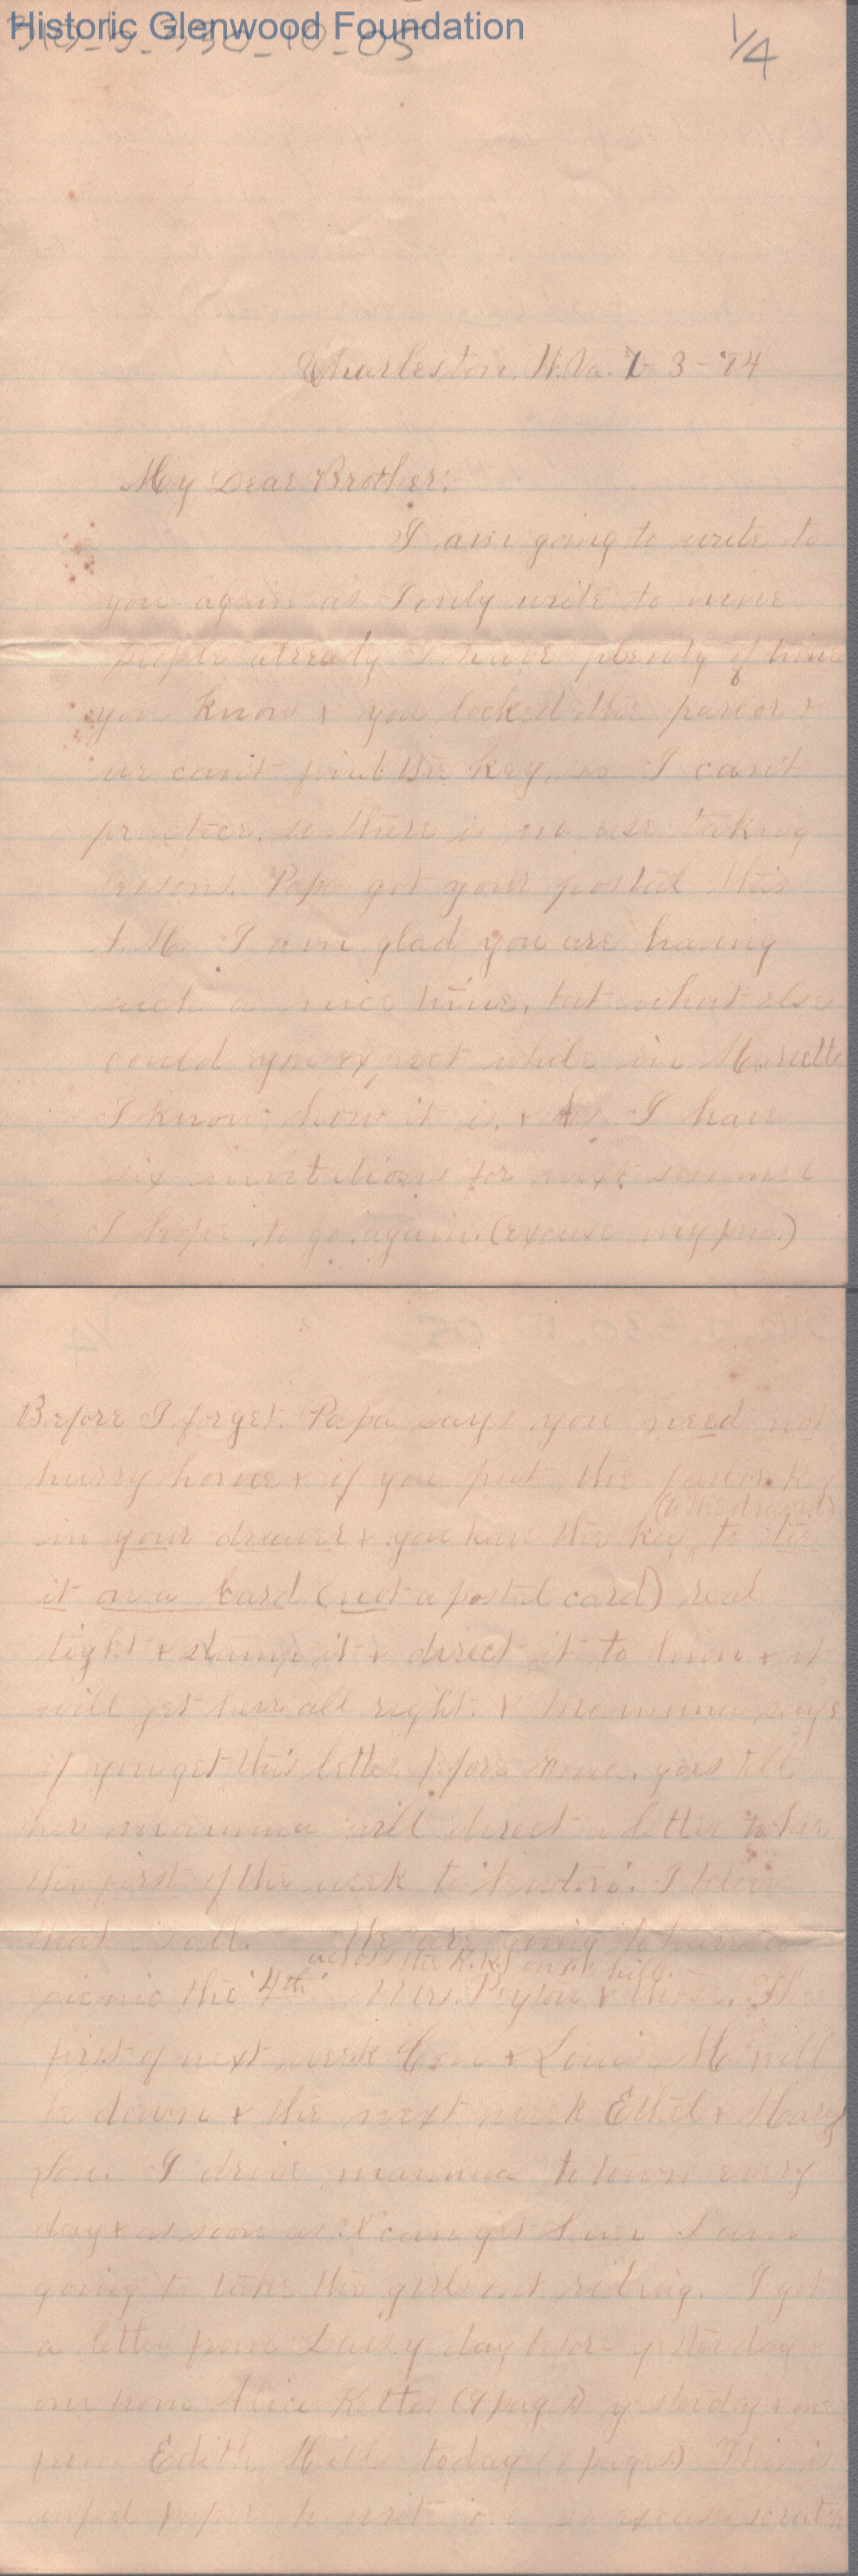 Historic Glenwood Foundation
1/4
Charleston, W.Va. 7-3-'94
My Dear Brother:
I am going to write to
you again as I only write to nine
people already & have plenty of time
you know & you locked the parlor &
we can't find the key, so I can't
practice, so there is no use taking
lessons. Papa got your postal this
A.M. I am glad you are having
such a nice time, but what else
could you expect while in Marietta
I know how it is, & as I have
six invitations for next summer
I hope to go again. (excuse my pen.)
Before I forget. Papa says you need not
hurry home & if you put the parlor key
in your drawer & you have the key (to the drawer) to tie
it on a card (not a postal card) real
tight & stamp it & direct it to him & it
will get here all right. & Mamma says
if you get this letter before goes tell
her mamma will direct a letter to her
the first of the week to I believe
that is all. We are going to have a
picnic the '4th' across the R.R. on the hill.
Mrs. Peyton & The
first of next week & Louise M will
be down & the next week Ethel & Mary
I drive mamma to town every
day & as soon as I can get time I am
going to take the girls out riding. I got
a letter from Daisy day before yesterday &
one from Alice (9 pages) yesterday & one
from Edith today pages) This is
awful paper to write on so excuse scratch